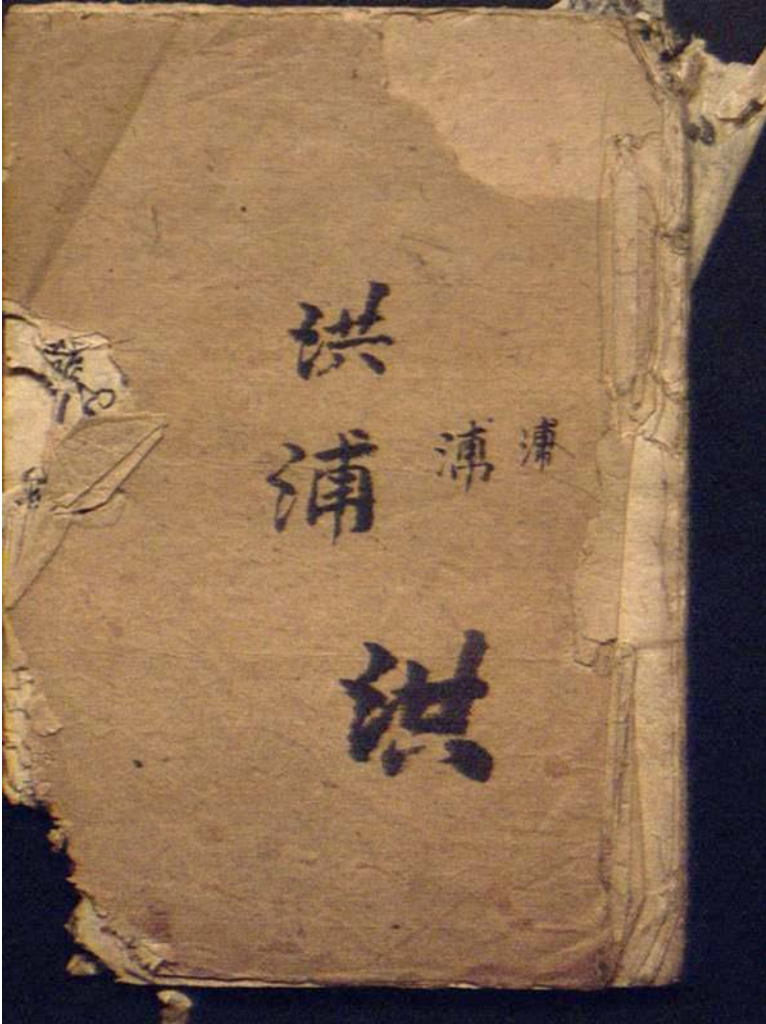 洪
浦 浦 浦
洪